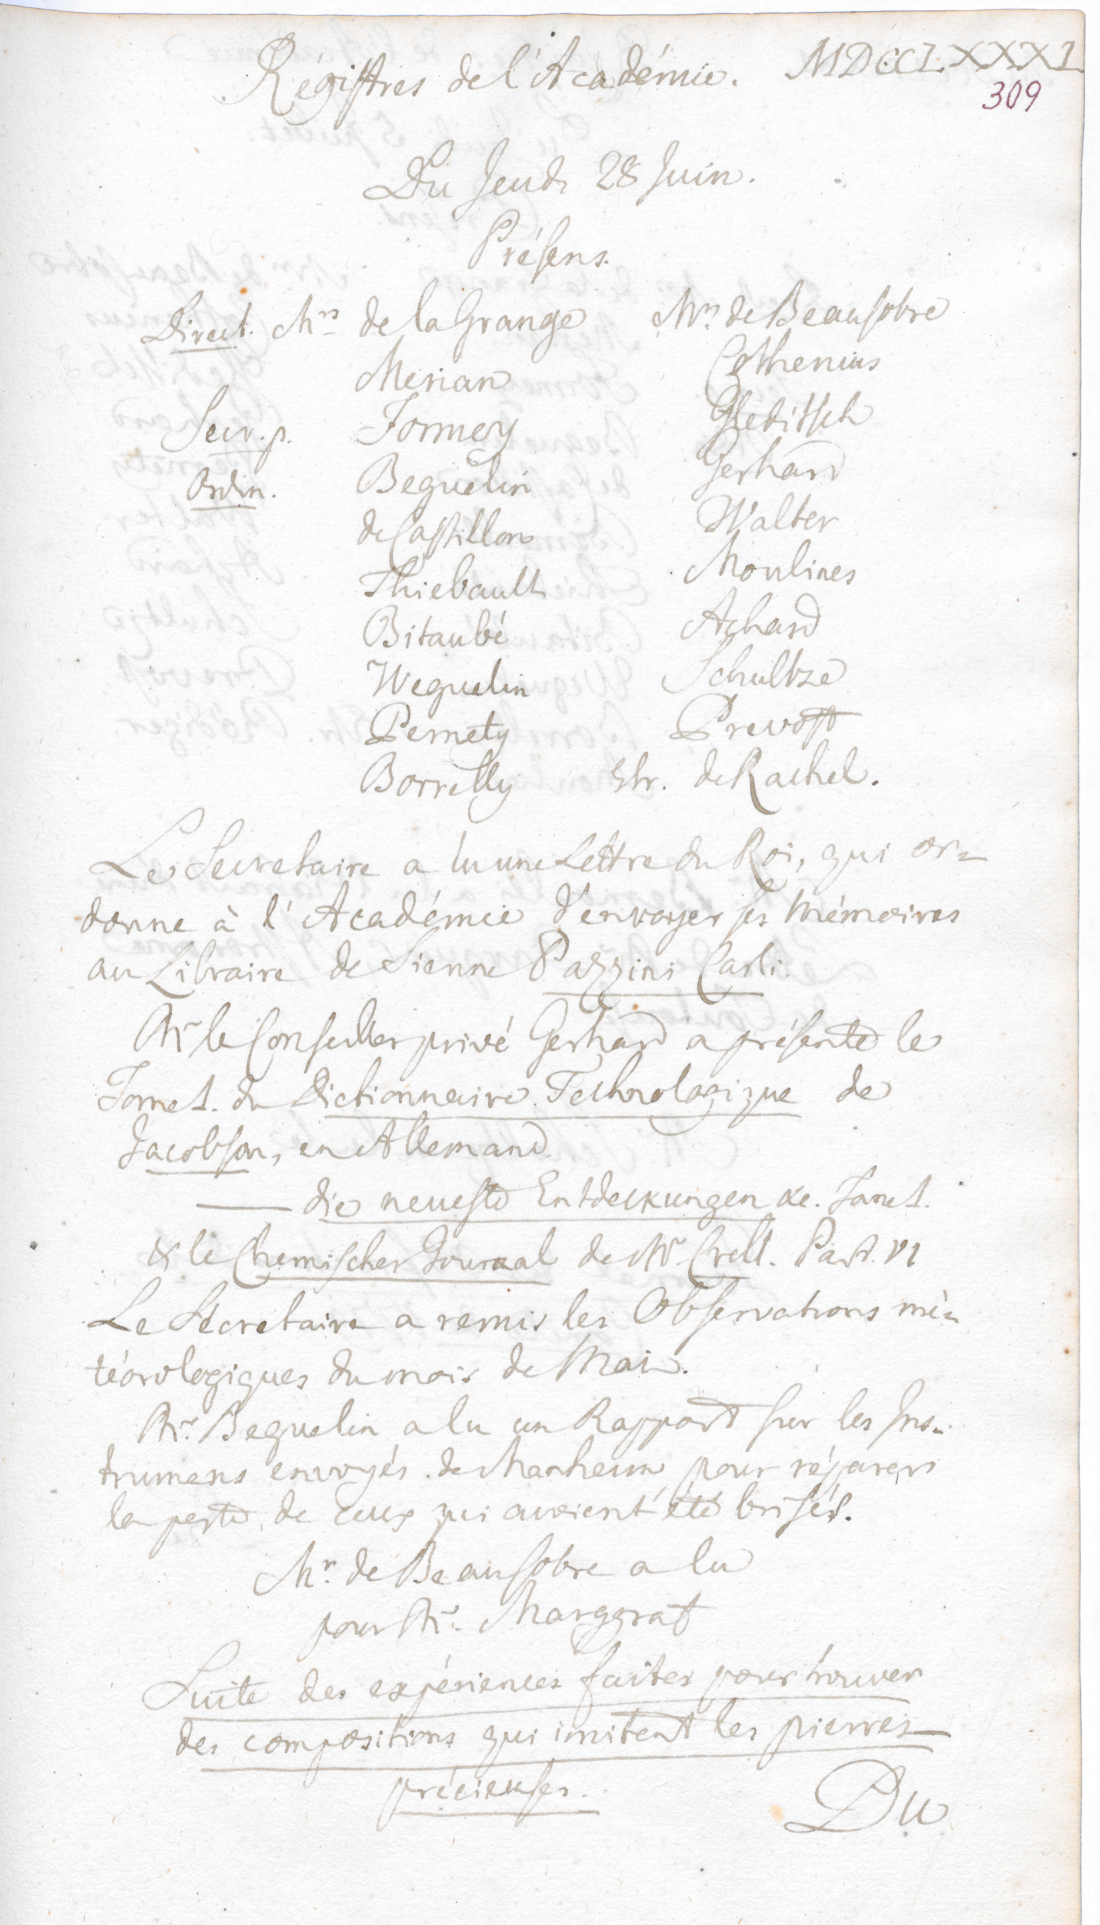 Régistres de l'Académie. MDCCLXXXI
309
Du Jeudi 28 Juin.
Présens.
Direct. Mrs de la Grange Mrs de Beausobre
Merian Cothenius
Secr. p. Formey Gleditsch
Ordin. Beguelin Gerhard
de Castillon Walter
Thiebault Moulines
Bitaubé Achard
Weguelin Schultze
Pernety Prevost
Borrelly Etr. de Rachel.
Le Secretaire a lu une Lettre du Roi, qui or=
donne à l'Académie d'envoyer ses Mémoires
au Libraire de Sienne Pazzini Carli.
Mr le Conseiller privé Gerhard a présenté le
Tome 1. du Dictionnaire Technologique de
Jacobson, en Allemand.
— die neueste Entdeckungen &c. Tome 1.
& le Chemischer Journal de Mr Crell. Part. VI
Le Sécretaire a remis les Observations mé=
téorologiques du mois de Mai.
Mr. Beguelin a lu un Rapport sur les Ins=
trumens envoyés de Manheim pour réparer
la perte de ceux qui avoient été brisés.
Mr. de Beausobre a lu
pour Mr. Marggraf
Suite des expériences faites pour trouver
des compositions qui imitent les pierres
précieuses.
Du